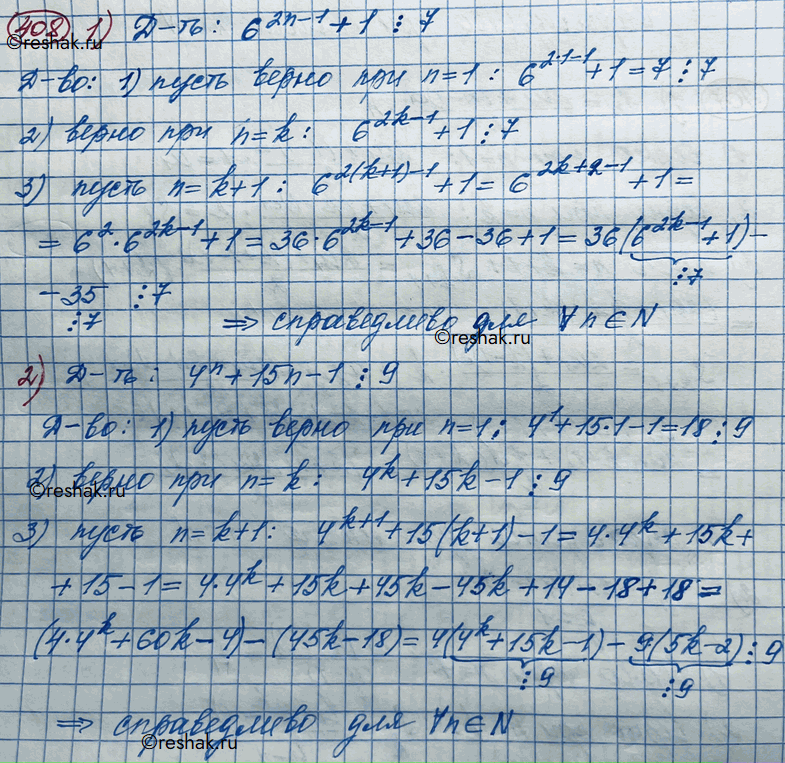 408. 1) Д-ть: 6^{2n-1} + 1 ⋮ 7
©reshak.ru
Д-во: 1) пусть верно при n=1: 6^{2·1-1} + 1 = 7 ⋮ 7
2) верно при n=k: 6^{2k-1} + 1 ⋮ 7
3) пусть n=k+1: 6^{2(k+1)-1} + 1 = 6^{2k+2-1} + 1 =
= 6^2 · 6^{2k-1} + 1 = 36 · 6^{2k-1} + 36 - 36 + 1 = 36(6^{2k-1} + 1) -
⋮7
- 35 ⋮ 7
⋮7 ⇒ справедливо для ∀ n ∈ N
©reshak.ru
2) Д-ть: 4^n + 15n - 1 ⋮ 9
Д-во: 1) пусть верно при n=1: 4^1 + 15·1 - 1 = 18 ⋮ 9
2) верно при n=k: 4^k + 15k - 1 ⋮ 9
©reshak.ru
3) пусть n=k+1: 4^{k+1} + 15(k+1) - 1 = 4·4^k + 15k +
+ 15 - 1 = 4·4^k + 15k + 45k - 45k + 14 - 18 + 18 =
(4·4^k + 60k - 4) - (45k - 18) = 4(4^k + 15k - 1) - 9(5k - 2) ⋮ 9
⋮9 ⋮9
⇒ справедливо для ∀n ∈ N
©reshak.ru